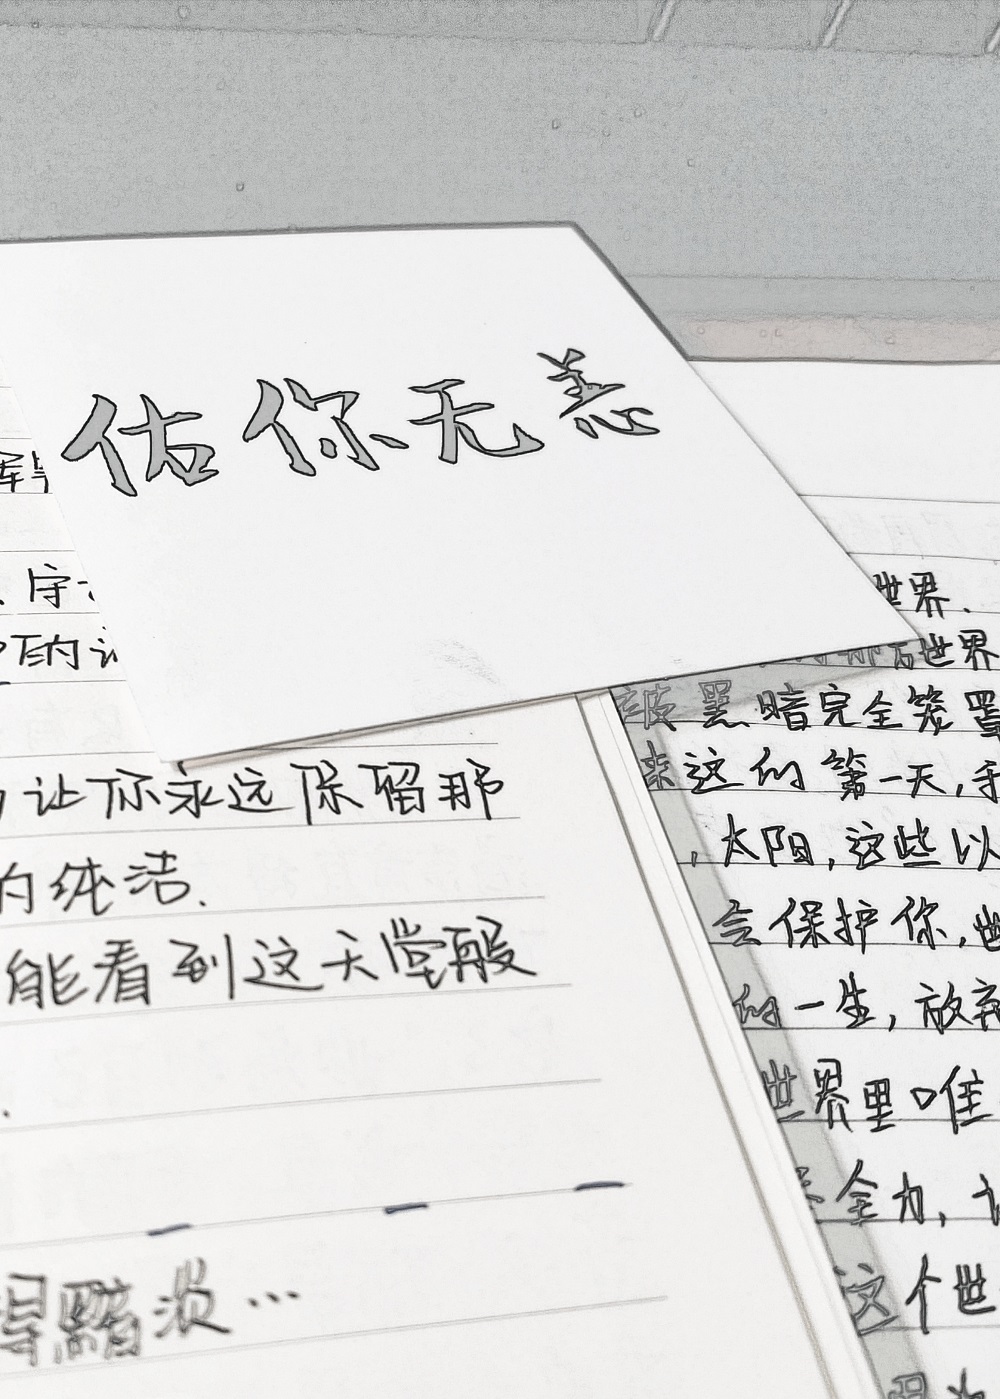 佑你无恙
守
的
让你永远保留那
的纯洁.
能看到这天堂般
得黯淡…
世界.
世界
被黑暗完全笼罩
来这的第一天,手
,太阳,这些以
会保护你,
的一生,放弃
世界里唯
全力,
这个世